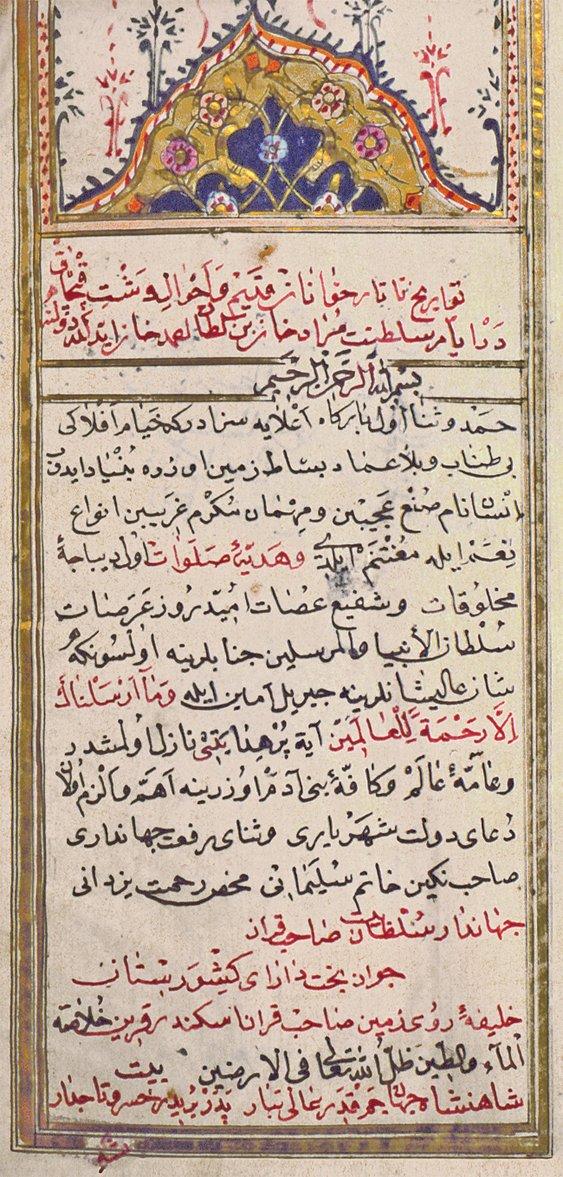 تواریخ تاتار خانان قدیم و احوال دشت قپچاق
در ایام سلطنت مراد خان بن سلطان احمد خان اید الله دولته
بسم الله الرحمن الرحیم
حمد و ثنا اول بارکاه اعلایه سزادرکه خیام افلاکی
بی طناب و بلا عماد بساط زمین اوزره بنیاد ایدوب
انسان نام صنع عجیبین و مهمان مکرم غریبین انواع
نعم ایله مغتنم ایلدی و هدیهٔ صلوات اول دیباجهٔ
مخلوقات و شفیع عصات امید روز عرصات
سلطان الأنبیا والمرسلین جنابلرینه اولسونکه
شان عالیشانلرینه جبریل امین ایله وما ارسلناك
الا رحمة للعالمین آیة برهنا یقینی نازل اولمشدر
و عامّهٔ عالم و کافّهٔ بنی آدم اوزرینه اهم و الزم اولان
دعای دولت شهریاری و ثنای رفعت جهانداری
صاحب نکین خاتم سلیمانی محض رحمت یزدانی
جهاندار سلطان صاحب قران
جوان بخت دارای کیشورستان
خلیفهٔ روی زمین صاحب قران اسکندر قرین خلاصهٔ
الماء والطین ظل الله تعالی فی الارضین بیت
شاهنشاه جهان جم قدر عالی تبار پدر بر پدر خسرو تاجدار